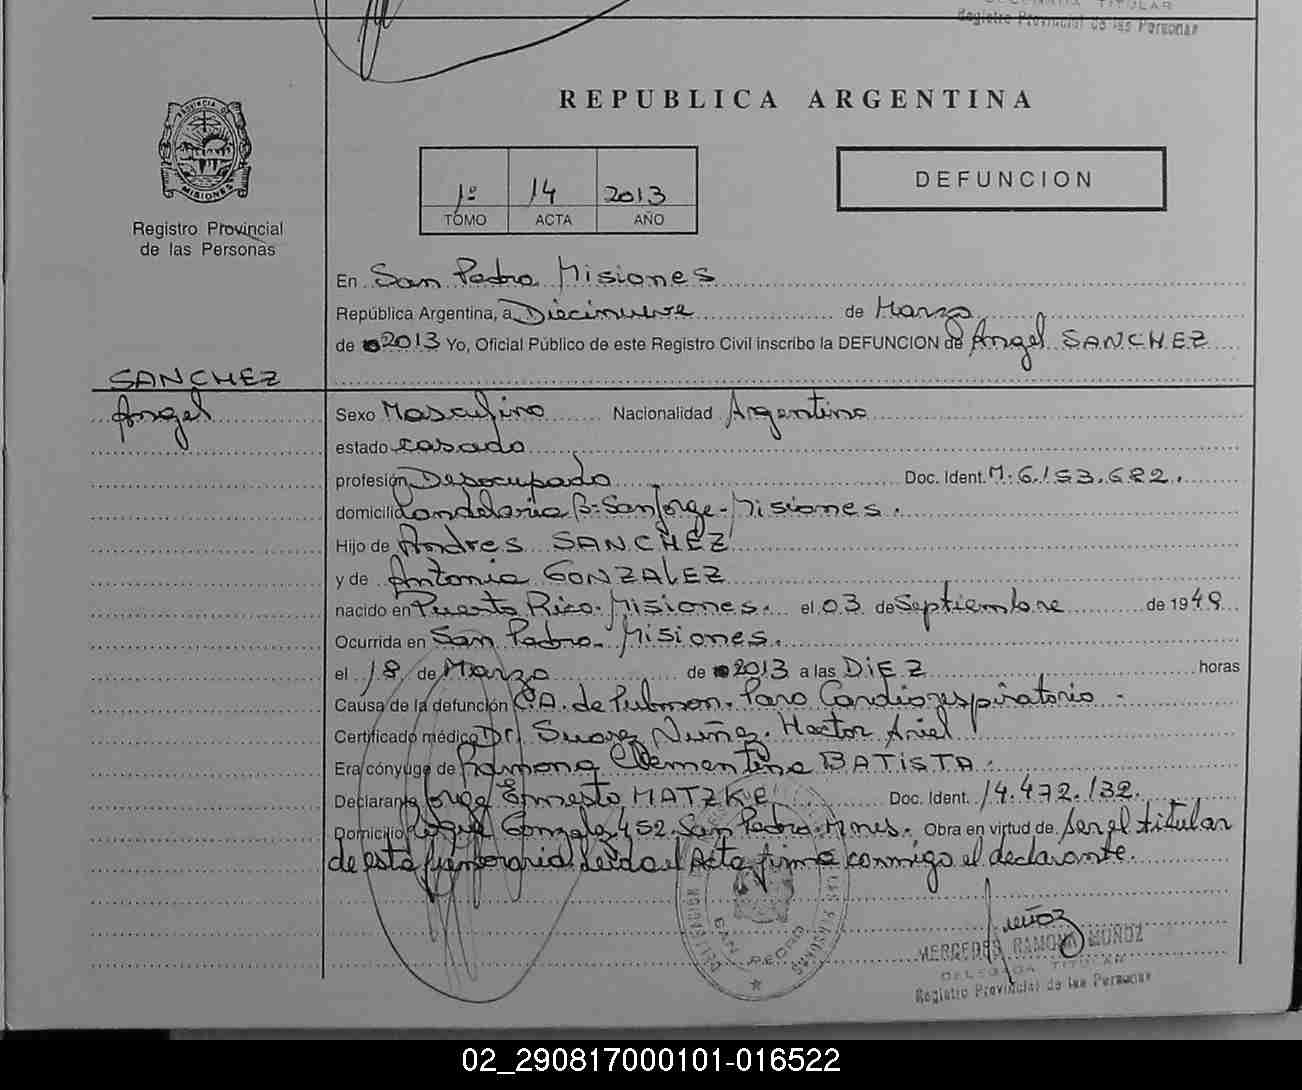 TITULAR
Registro Provincial de las Personas
REPUBLICA ARGENTINA
PROVINCIA DE
MISIONES
Registro Provincial
de las Personas
1º 14 2013
TOMO ACTA AÑO
DEFUNCION
En San Pedro Misiones
República Argentina, a Diecinueve de Marzo
de 2013 Yo, Oficial Público de este Registro Civil inscribo la DEFUNCION de Angel SANCHEZ
SANCHEZ
Angel
Sexo Masculino Nacionalidad Argentina
estado casado
profesión Desocupado Doc. Ident. M. 6.153.682.
domicilio Candelaria Bº San Jorge - Misiones.
Hijo de Andres SANCHEZ
y de Antonia GONZALEZ
nacido en Puerto Rico. Misiones. el 03 de Septiembre de 1949
Ocurrida en San Pedro. Misiones.
el 18 de Marzo de 2013 a las DIEZ horas
Causa de la defunción C.A. de Pulmon. Paro Cardiorespiratorio.
Certificado médico Dr. Suarez Nuñez. Hector Ariel
Era cónyuge de Ramona Clementina BATISTA.
Declarante Jorge Ernesto MATZKE Doc. Ident. 14.472.132.
Domicilio Roque Gonzalez 452. San Pedro. Mnes. Obra en virtud de ser el titular
de esta funeraria leida el Acta firma conmigo el declarante.
SAN PEDRO
Muñoz
MERCEDES RAMONA MUÑOZ
DELEGADA TITULAR
Registro Provincial de las Personas
02_290817000101-016522